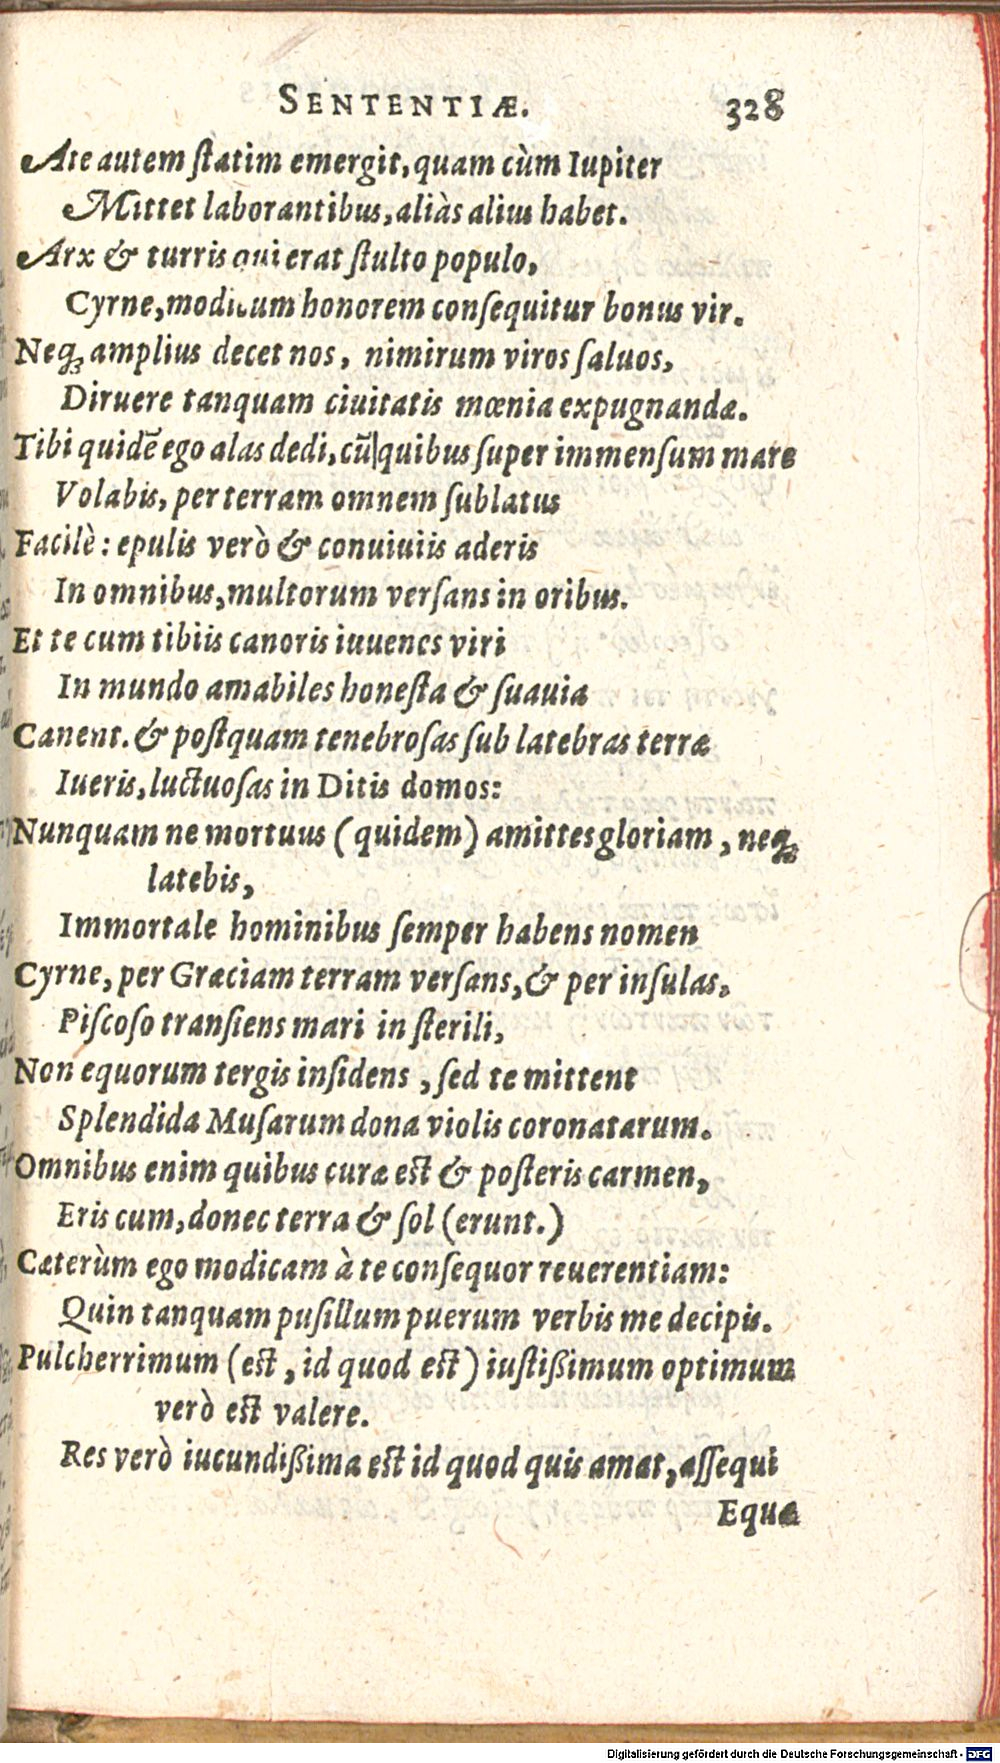 SENTENTIÆ. 328
Ate autem ſtatim emergit, quam cùm Iupiter
Mittet laborantibus, aliàs alius habet.
Arx & turris qui erat ſtulto populo,
Cyrne, modicum honorem conſequitur bonus vir.
Neq; amplius decet nos, nimirum viros ſaluos,
Diruere tanquam ciuitatis mœnia expugnandæ.
Tibi quidē ego alas dedi, cū quibus ſuper immenſum mare
Volabis, per terram omnem ſublatus
Facilè: epulis verò & conuiuiis aderis
In omnibus, multorum verſans in oribus.
Et te cum tibiis canoris iuuenes viri
In mundo amabiles honeſta & ſuauia
Canent. & poſtquam tenebroſas ſub latebras terræ
Iueris, luctuoſas in Ditis domos:
Nunquam ne mortuus (quidem) amittes gloriam, neq;
latebis,
Immortale hominibus ſemper habens nomen
Cyrne, per Græciam terram verſans, & per inſulas.
Piſcoſo tranſiens mari in ſterili,
Non equorum tergis inſidens, ſed te mittent
Splendida Muſarum dona violis coronatarum.
Omnibus enim quibus curæ eſt & poſteris carmen,
Eris cum, donec terra & ſol (erunt.)
Cæterùm ego modicam à te conſequor reuerentiam:
Quin tanquam puſillum puerum verbis me decipis.
Pulcherrimum (eſt, id quod eſt) iuſtißimum optimum
verò eſt valere.
Res verò iucundißima eſt id quod quis amat, aſſequi
Equæ
Digitalisierung gefördert durch die Deutsche Forschungsgemeinschaft - DFG